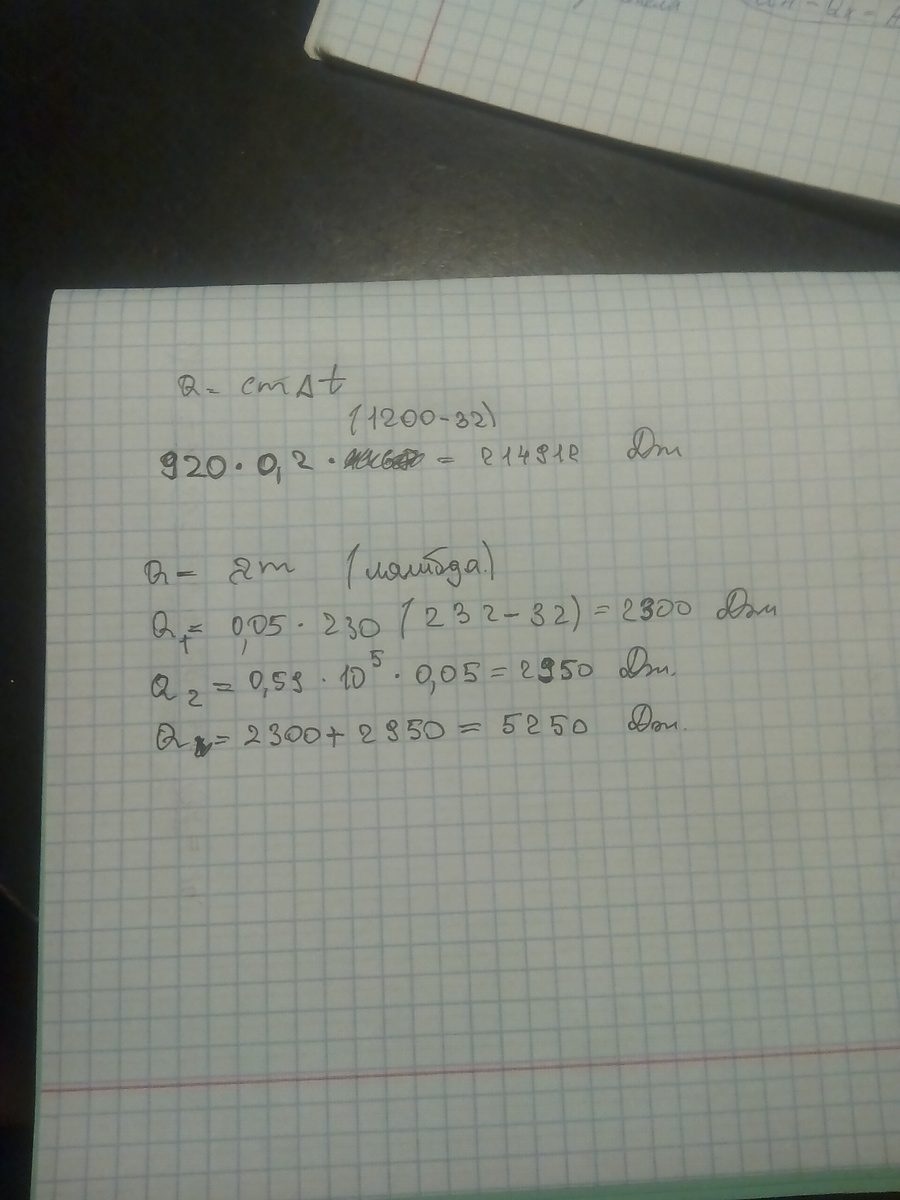 Q = cm Δt
(1200-32)
920 · 0,2 · = 214912 Дж
Q = λm (лямбда)
Q₁ = 0,05 · 230 (232-32) = 2300 Дж
Q₂ = 0,59 · 10⁵ · 0,05 = 2950 Дж.
Q = 2300 + 2950 = 5250 Дж.